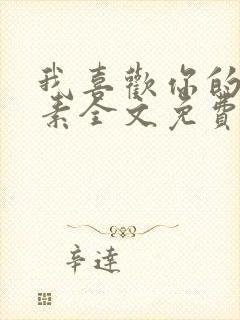 我喜歡你的
素全文免費
辛達